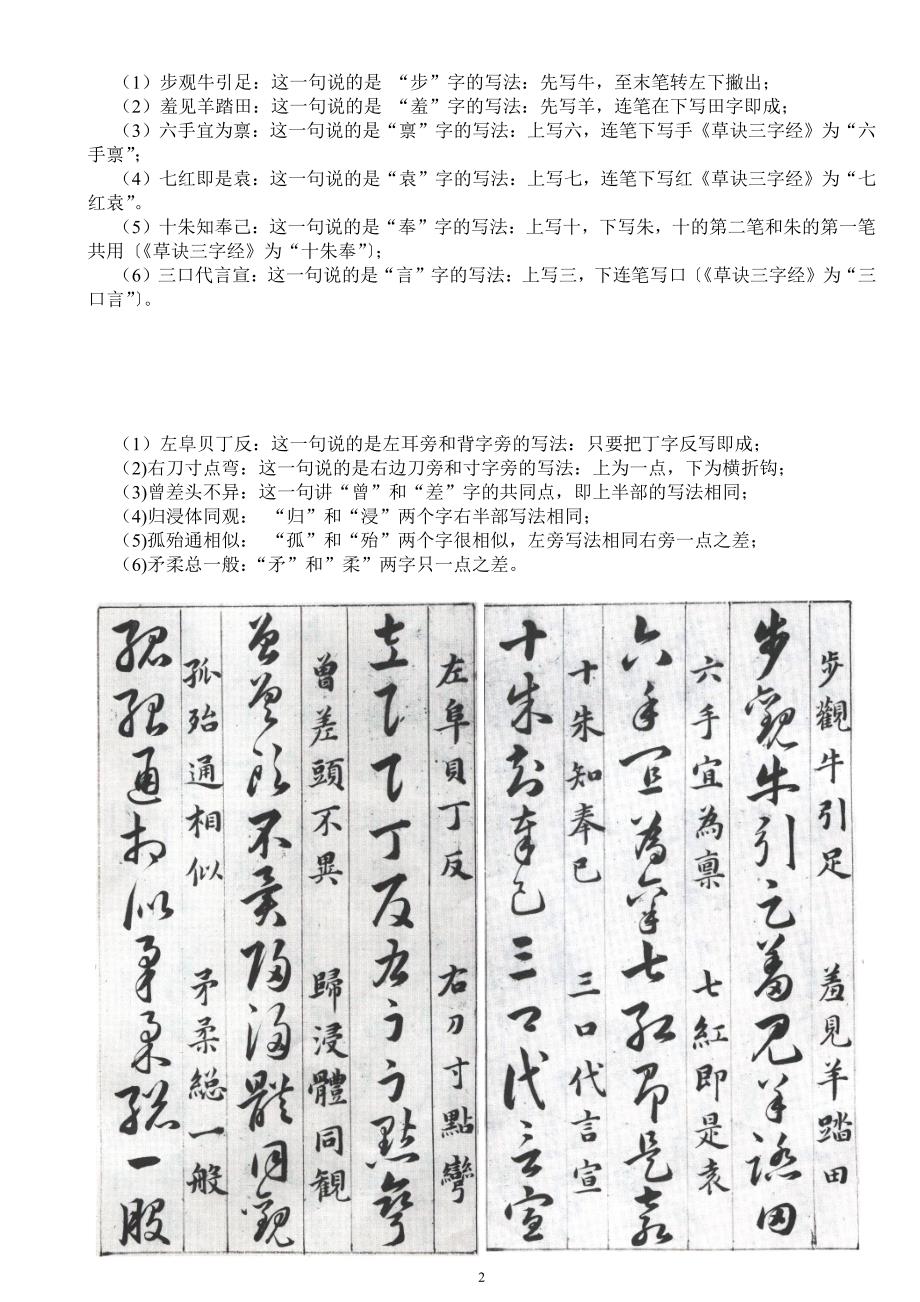 （1）步观牛引足：这一句说的是 “步”字的写法：先写牛，至末笔转左下撇出；
（2）羞见羊踏田：这一句说的是 “羞”字的写法：先写羊，连笔在下写田字即成；
（3）六手宜为禀：这一句说的是“禀”字的写法：上写六，连笔下写手《草诀三字经》为“六
手禀”；
（4）七红即是袁：这一句说的是“袁”字的写法：上写七，连笔下写红《草诀三字经》为“七
红袁”。
（5）十朱知奉己：这一句说的是“奉”字的写法：上写十，下写朱，十的第二笔和朱的第一笔
共用〔《草诀三字经》为“十朱奉”〕；
（6）三口代言宣：这一句说的是“言”字的写法：上写三，下连笔写口〔《草诀三字经》为“三
口言”〕。
（1）左阜贝丁反：这一句说的是左耳旁和背字旁的写法：只要把丁字反写即成；
（2)右刀寸点弯：这一句说的是右边刀旁和寸字旁的写法：上为一点，下为横折钩；
（3)曾差头不异：这一句讲“曾”和“差”字的共同点，即上半部的写法相同；
（4)归浸体同观： “归”和“浸”两个字右半部写法相同；
（5)孤殆通相似： “孤”和“殆”两个字很相似，左旁写法相同右旁一点之差；
（6)矛柔总一般：“矛”和”柔”两字只一点之差。
步觀牛引足 羞見羊踏田
步觀牛引足羞見羊踏田
六手宜為禀 七紅即是袁
六手宜為禀七紅即是袁
十朱知奉已 三口代言宣
十朱知奉已三口代言宣
左阜貝丁反 右刀寸點彎
左阜貝丁反右刀寸點彎
曾差頭不異 歸浸體同観
曾差頭不異歸浸體同觀
孤殆通相似 矛柔総一般
孤殆通相似矛柔総一般
2